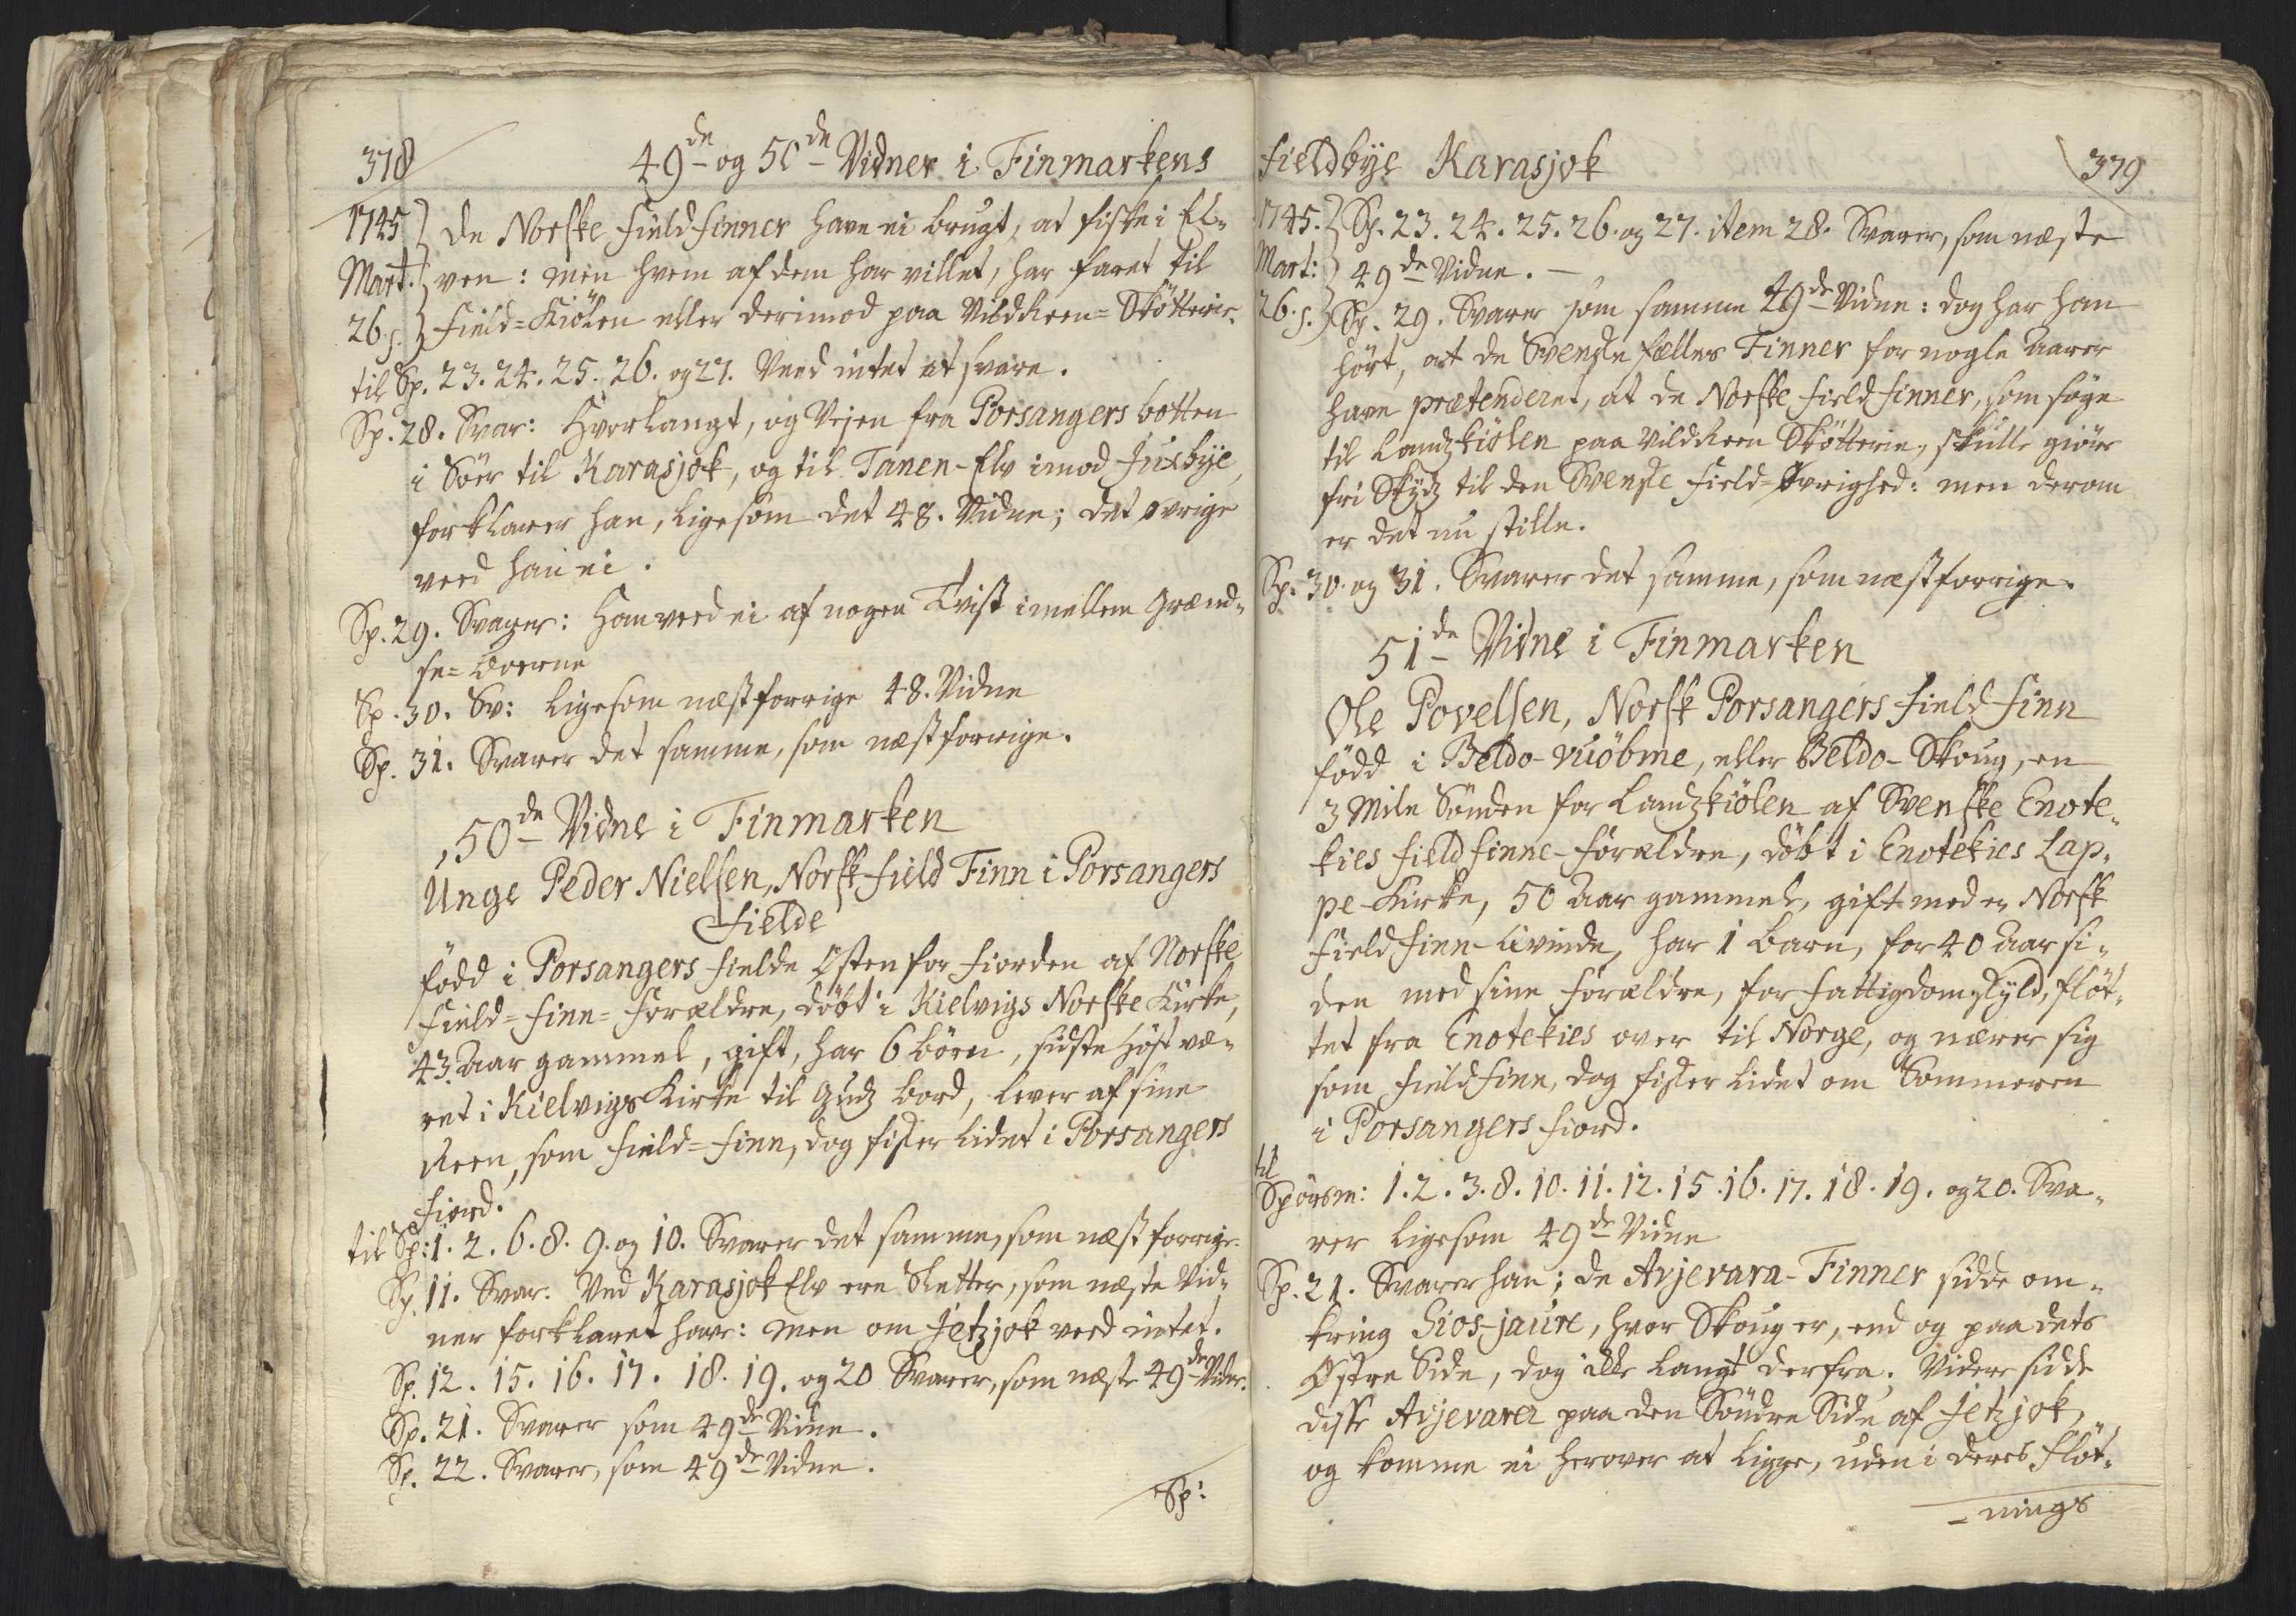 378
49de og 50de Vidner i Finmarkens
1745 De Norske Fieldfinner have ei brugt, at fiske i El-
Mart: ven: men hvem af dem har villet, har faret til
26. s. Field-Kiölen eller derimod paa Vildreen-Skötterie.
til Sp. 23. 24. 25. 26. og 27. Veed intet at svare.
Sp. 28. Svar: Hvorlangt, og Vejen fra Porsangers botten
i Söer til Karasjok, og til Tanen-Elv imod Juxbÿe,
forklarer han, ligesom det 48. Vidne; det øvrige
veed han ei.
Sp. 29. Svarer: Han veed ei af nogen Tvist imellem Grænd-
se-Boerne
Sp. 30. Sv: ligesom næstforrige 48. Vidne
Sp. 31. Svarer det samme, som næstforrige.
50de Vidne i Finmarken
Unge Peder Nielsen, Norsk Field Finn i Porsangers
Fielde
född i Porsangers Fielde Østen for Fiorden af Norske
Field-Finn-Forældre, döbt i Kielvigs Norske Kirke,
43 Aar gammel, gift, har 6 börn, sidste Höst væ-
ret i Kielvigs Kirke til Gudz bord, lever af sine
Reen, som Field-Finn, dog fisker lidet i Porsangers
Fiord.
til Sp: 1. 2. 6. 8. 9. og 10. Svarer det samme, som næstforrige.
Sp. 11. Svar. Ved Karasjok Elv ere Sletter, som næste Vid-
ner forklaret have: men om Jetzjok veed intet.
Sp. 12. 15. 16. 17. 18. 19. og 20 Svarer, som næste 49de Vidne.
Sp. 21. Svarer som 49de Vidne.
Sp. 22. Svarer, som 49de Vidne.
Sp:
Fieldbÿe Karasjok
379
1745. Sp. 23. 24. 25. 26. og 27. item 28. Svarer, som næste
Mart: 49de Vidne. –
26. s. Sp. 29. Svarer som samme 49de Vidne: dog har han
hört, at de Svenske fælles Finner for nogle Aarer
have prætenderet, at de Norske Fieldfinner, som söge
til Landzkiölen paa Vildreen Skötterie, skulle giöre
fri Skÿdz til den Svenske Field-Øvrighed: men derom
er det nu stille.
Sp. 30. og 31. Svarer det samme, som næstforrige.
51de Vidne i Finmarken
Ole Povelsen, Norsk Porsangers Field Finn
född i Beldo-vuöbme, eller Beldo-Skoug, en
3 Mile Sönden for Landzkiölen af Svenske Enote-
kies Fieldfinne-Forældre, döbt i Enotekies Lap-
pe-Kirke, 50 Aar gammel, gift med en Norsk
Fieldfinn-Qvinde, har 1 barn, for 40 Aar si-
den med sine Forældre, for Fattigdomskyld, flöt-
tet fra Enotekies over til Norge, og nærer sig
som Fieldfinn, dog fisker lidet om Sommeren
i Porsangers Fiord.
til
Spörsm: 1. 2. 3. 8. 10. 11. 12. 15. 16. 17. 18. 19. og 20. Sva-
rer ligesom 49de Vidne
Sp. 21. Svarer han; de Avjevara-Finner sidde om-
kring Gios-jaure, hvor Skoug er, end og paa dets
Østre Side, dog ikke langt derfra; Videre sidde
disse Avjevarer paa den Söndre Side af Jetzjok,
og komme ei herover at ligge, uden i deres Flöt-
-nings